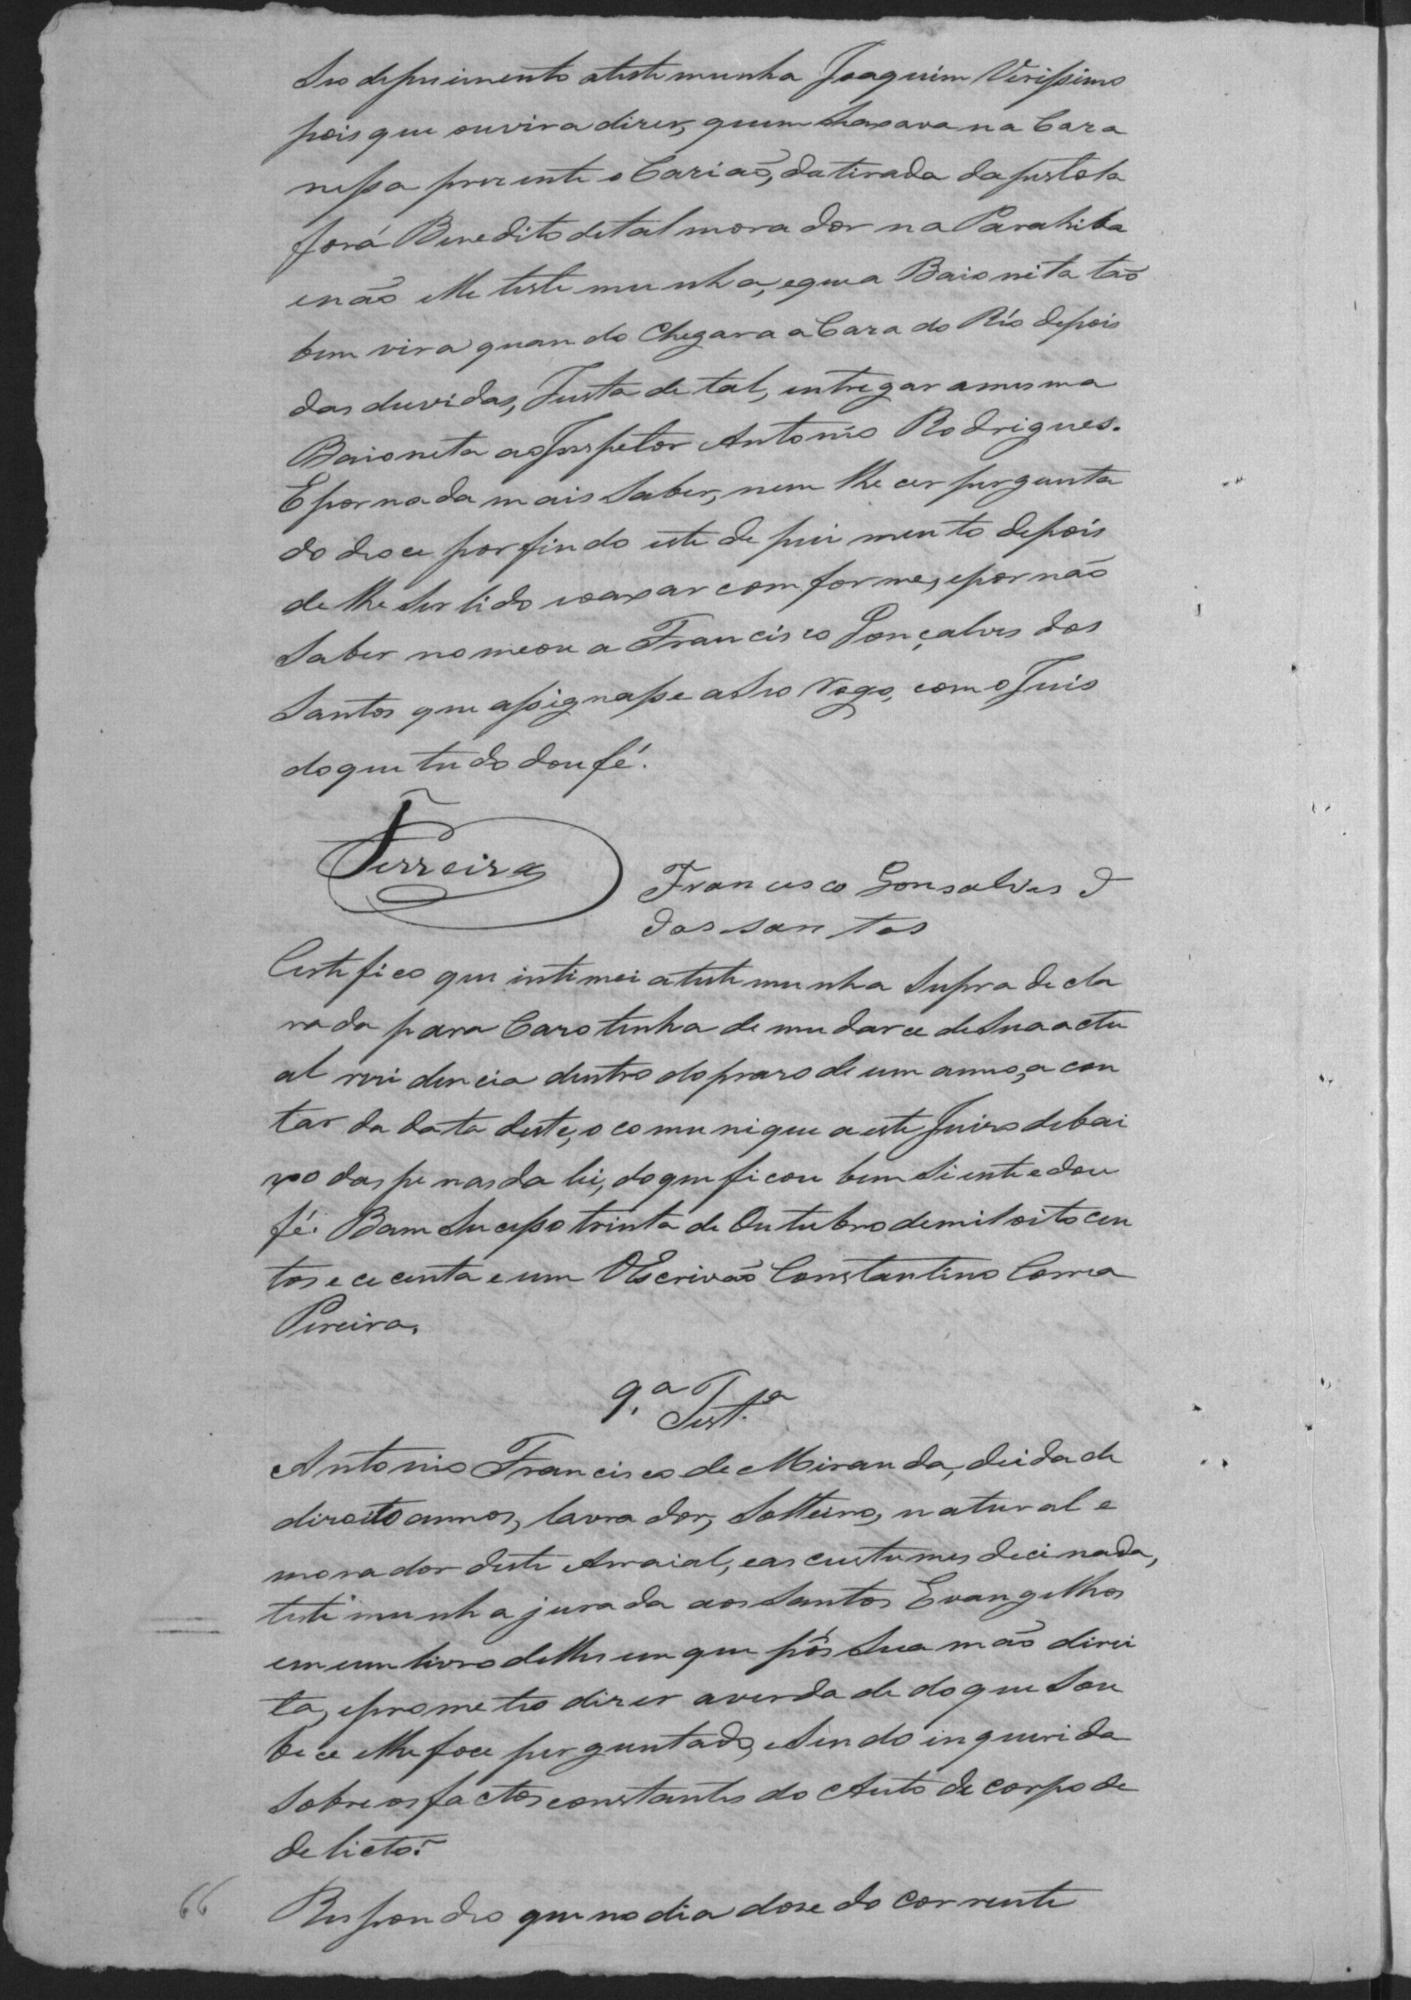 Seo depuimento atestemunha Joaquim Virissimo
pois que ouvira dizer, quem Shaxava na Caza
nessa prezente ocaziaõ, datirada dapistola
forá Benedito detal morador na Parahiba
enaõ elle testemunha, equea Baioneta taõ
bem vira quando chegara aCaza do Rio depois
das duvidas, Justa de tal, entregar amesma
Baioneta aoInspetor Antonio Rodrigues.
Epornada mais Saber, nem lhe cer pergunta
do deoce porfindo este depuimento depois
delhe Ser lido eoaxar comforme, epor naõ
Saber nomeou a Francisco Gonçalves dos
Santos que assignasse aSeo rogo, com oJuis
doque tudo dou fé.
Ferreira
Francisco Gonsalves d
dos san tos
Certifico que intimei atestemunha Supra decla
rada para Cazo tenha de mudarce deSua actu
al rezidencia dentro doprazo de um anno, a con
tar da data deste, o comunique a este Juizo debai
xo das penas da lei, doque ficou bem Siente e dou
fé. Bam Sucesso trinta de Outubro demil oito cen
tos e cecenta e um OEscrivaõ Constantino Correa
Pereira.
9.ª Test.ª
Antonio Francisco de Miranda, deidade
dizoito annos, lavrador, Solteiro, natural e
morador deste Arraial, eas custumes dice nada,
testemunha jurada aos Santos Evangelhos
em um livro delles em que pôs Sua maõ direi
ta, eprometeo dizer averdade doque Sou
bece elhe foce perguntado, eSendo inquerida
Sobre os factos constantes do Auto de corpo de
delicto.
Respondeo que no dia doze do corrente
66